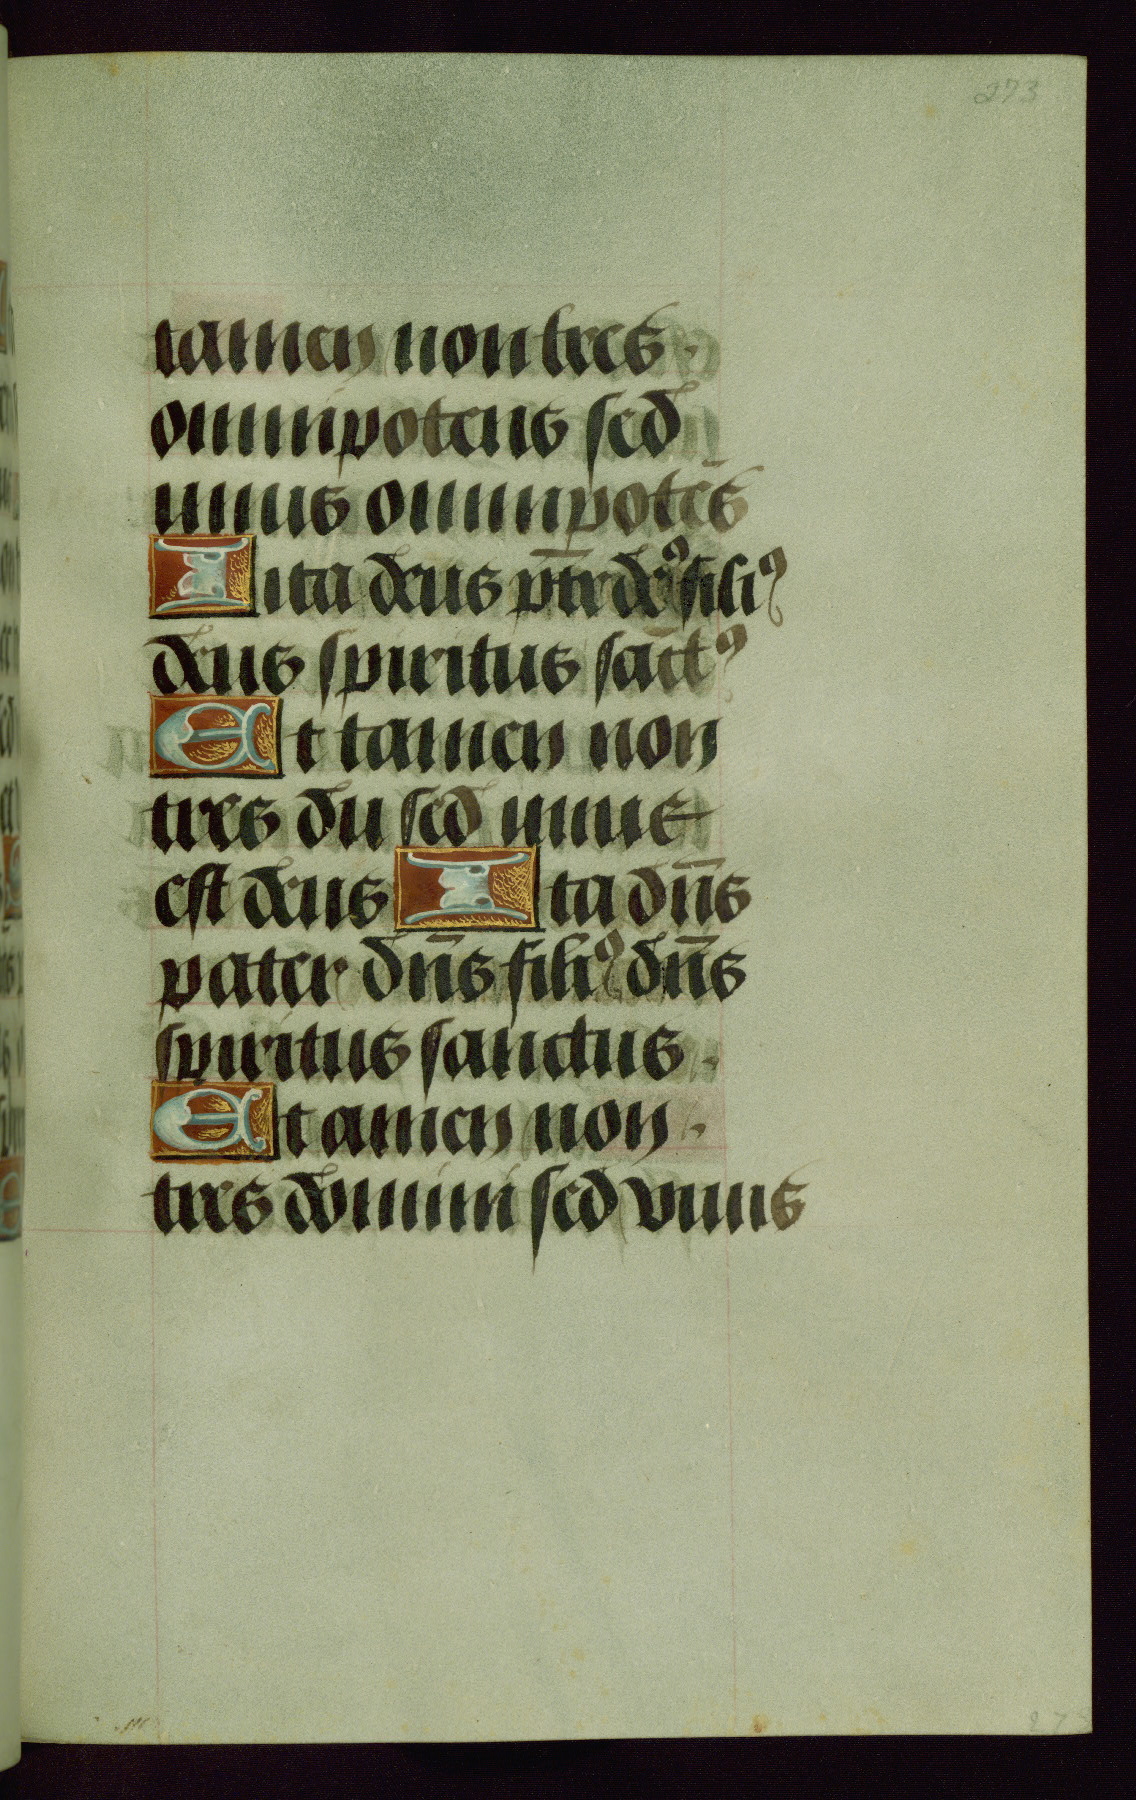 273
tamen non tres.
omnipotens sed
unus omnipotēs
Iita deus pr̄ deꝰ filiꝰ
deus spiritus sāctꝰ
Et tamen non
tres dii sed unus
est deus Ita dn̄s
pater dn̄s filiꝰ dn̄s
spiritus sanctus.
Et tamen non.
tres domini sed vnus